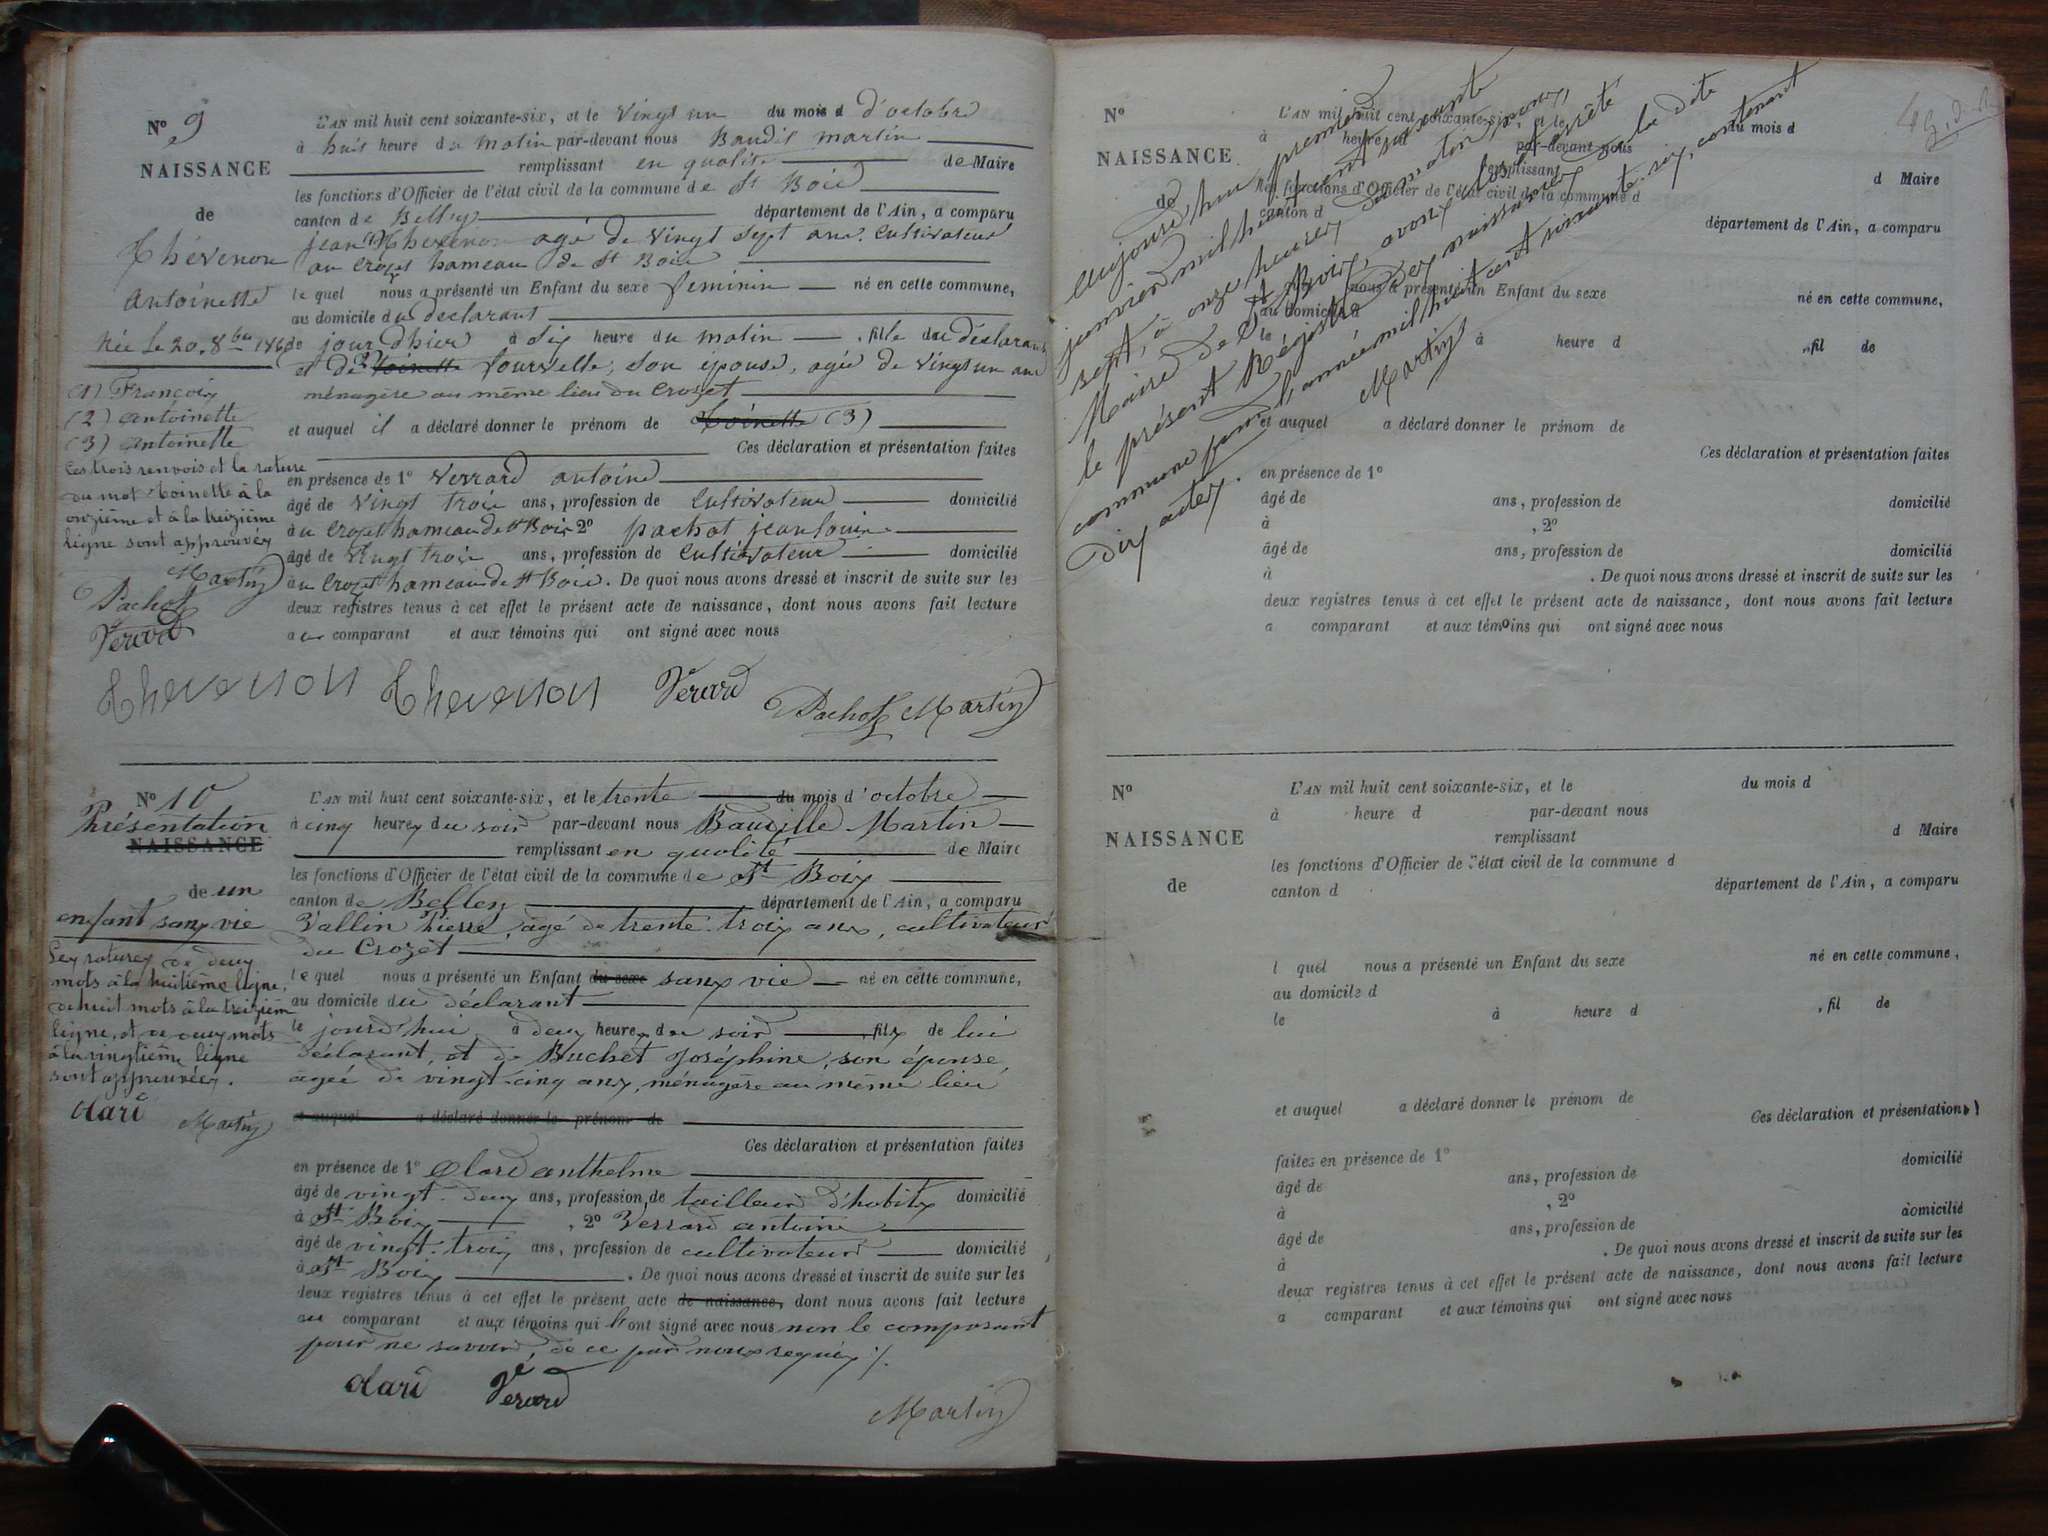 N° 9
NAISSANCE
de
Thévenon
Antoinette
née le 20. 8bre 1866
(1) François
(2) antoinette
(3) antoinette
Ces trois renvois et la rature
du mot toinette à la
onzième et à la treizième
ligne sont approuvés
Martin
Pachot
Verard
L'AN mil huit cent soixante-six, et le vingt un du mois d d'octobre
à huit heure du matin par-devant nous Baudil martin
remplissant en qualité de Maire
les fonctions d'Officier de l'état civil de la commune de St Boid
canton de Belley département de l'Ain, a comparu
jean thevenon agé de vingt sept ans. Cultivateur
au crozet hameau de St Bois
le quel nous a présenté un Enfant du sexe feminin né en cette commune,
au domicile du declarant
de jour dhier à six heure du matin fille du déclarant
et de toinette Fourvelle, son épouse, agée de vingt un ans
ménagère au même lieu du Crozet
et auquel il a déclaré donner le prénom de toinette (3)
Ces déclaration et présentation faites
en présence de 1° Verrard antoine
âgé de vingt trois ans, profession de Cultivateur domicilié
à u Crozet hameau de St Bois 2° pachot jean louis
âgé de vingt trois ans, profession de Cultivateur domicilié
à u Crozet hameau de St Bois. De quoi nous avons dressé et inscrit de suite sur les
deux registres tenus à cet effet le présent acte de naissance, dont nous avons fait lecture
a u comparant et aux témoins qui ont signé avec nous
Thevenon Thevenon Verard
Pachot Martin
N° 10
Présentation
NAISSANCE
de un
enfant sans vie
Les ratures de deux
mots à la huitième ligne,
de huit mots à la treizième
ligne, et de deux mots
à la vingtième ligne
sont approuvées.
olard Martin
L'AN mil huit cent soixante-six, et le trente du mois d'octobre
à cinq heures du soir par-devant nous Baudille Martin
remplissant en qualité de Maire
les fonctions d'Officier de l'état civil de la commune de St Bois
canton de Belley département de l'Ain, a comparu
Vallin Pierre, agé de trente-trois ans, cultivateur
du Crozet
le quel nous a présenté un Enfant du sexe sans vie né en cette commune,
au domicile du déclarant
le jourd'hui à deux heures du soir, fils de lui
déclarant, et de Buchet Joséphine, son épouse,
agée de vingt-cinq ans, ménagère au même lieu
et auquel a déclaré donner le prénom de
Ces déclaration et présentation faites
en présence de 1° Olard anthelme
âgé de vingt-deux ans, profession de tailleur d'habits domicilié
à St Bois, 2° Verrard antoine
âgé de vingt-trois ans, profession de cultivateur domicilié
à St Bois. De quoi nous avons dressé et inscrit de suite sur les
deux registres tenus à cet effet le présent acte de naissance, dont nous avons fait lecture
au comparant et aux témoins qui l'ont signé avec nous non le comparant
pour ne savoir, de ce par nous requis ./.
olard Verard
Martin
N°
NAISSANCE
de
L'AN mil huit cent soixante-six, et le du mois d
à heure d par-devant nous
remplissant d Maire
les fonctions d'Officier de l'état civil de la commune d
canton d département de l'Ain, a comparu
nous a présenté un Enfant du sexe né en cette commune,
au domicile d
le à heure d , fil de
et auquel a déclaré donner le prénom de
Ces déclaration et présentation faites
en présence de 1°
âgé de ans, profession de domicilié
à , 2°
âgé de ans, profession de domicilié
à . De quoi nous avons dressé et inscrit de suite sur les
deux registres tenus à cet effet le présent acte de naissance, dont nous avons fait lecture
a comparant et aux témoins qui ont signé avec nous
Aujourd'hui premier
janvier mil huit cent soixante
sept, à onze heures du matin, nous,
Maire de St Bois, avons clos et arrêté
le présent Régistre des naissances de la dite
commune pour l'année mil huit cent soixante-six, contenant
dix actes.
Martin
N°
NAISSANCE
de
L'AN mil huit cent soixante-six, et le du mois d
à heure d par-devant nous
remplissant d Maire
les fonctions d'Officier de l'état civil de la commune d
canton d département de l'Ain, a comparu
l quel nous a présenté un Enfant du sexe né en cette commune,
au domicile d
le à heure d , fil de
et auquel a déclaré donner le prénom de
Ces déclaration et présentation
faites en présence de 1° domicilié
âgé de ans, profession de
à , 2° domicilié
âgé de ans, profession de
à . De quoi nous avons dressé et inscrit de suite sur les
deux registres tenus à cet effet le présent acte de naissance, dont nous avons fait lecture
a comparant et aux témoins qui ont signé avec nous